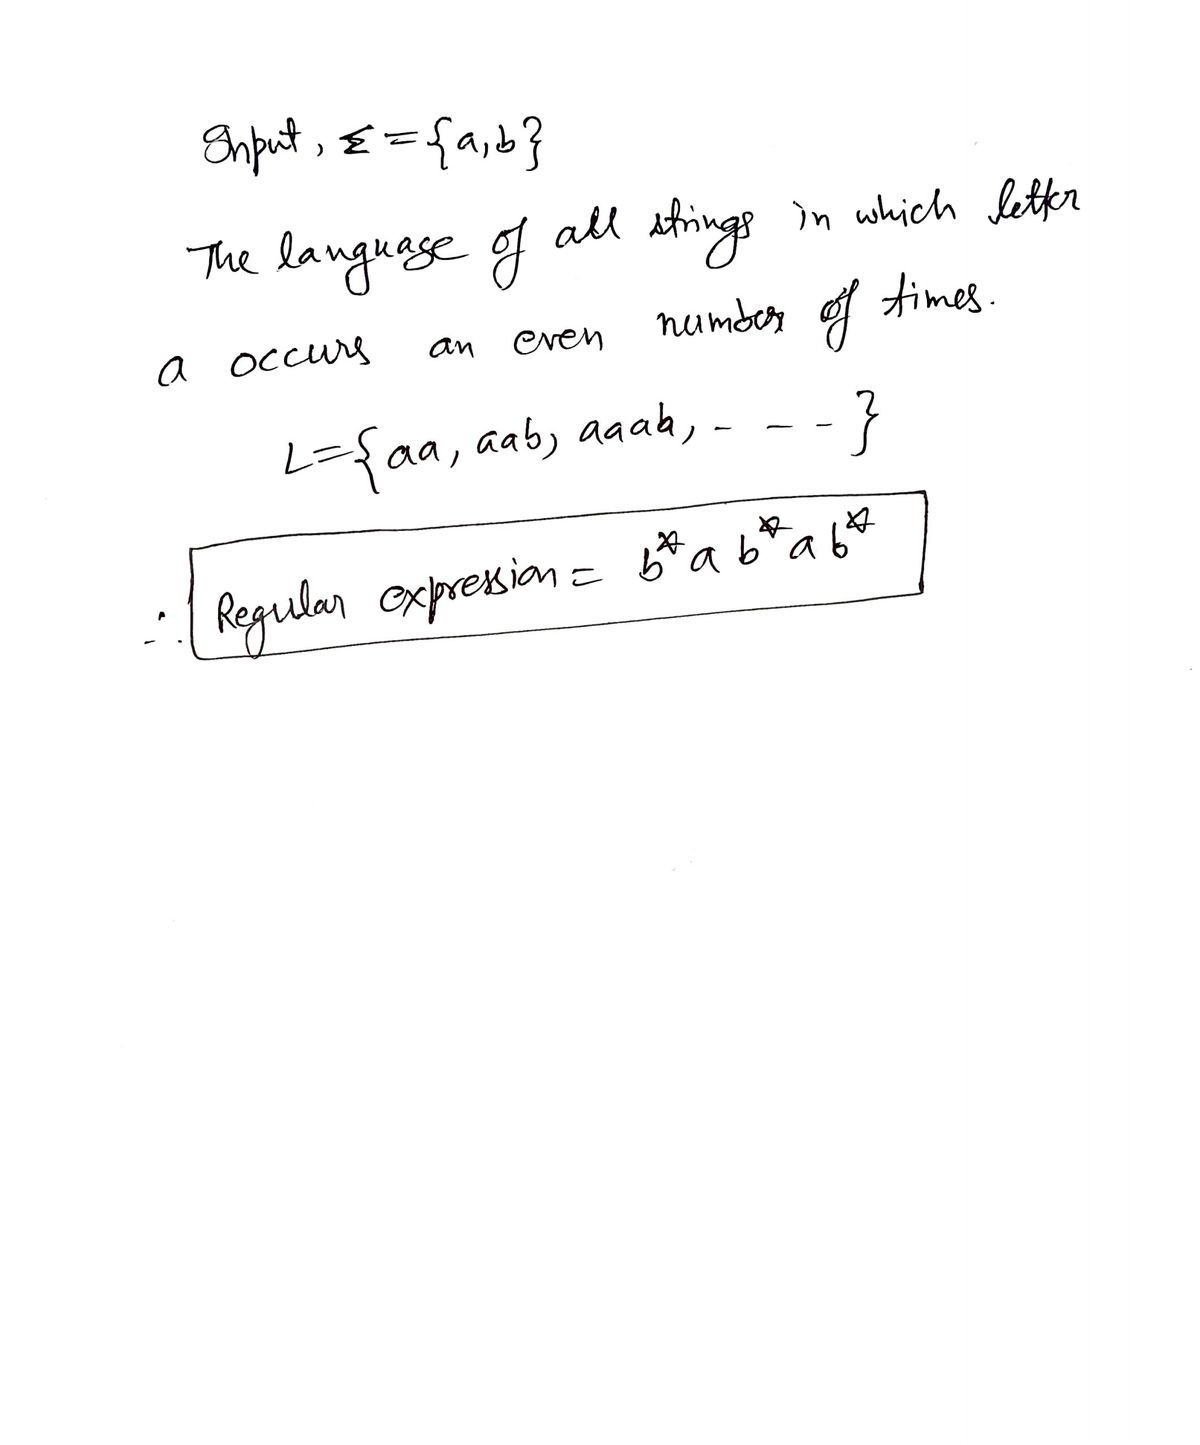 Input, Σ = {a,b}
The language of all strings in which letter
a occurs an even number of times.
L={aa, aab, aaab, - - - -}
∴ Regular expression = b*ab*ab*